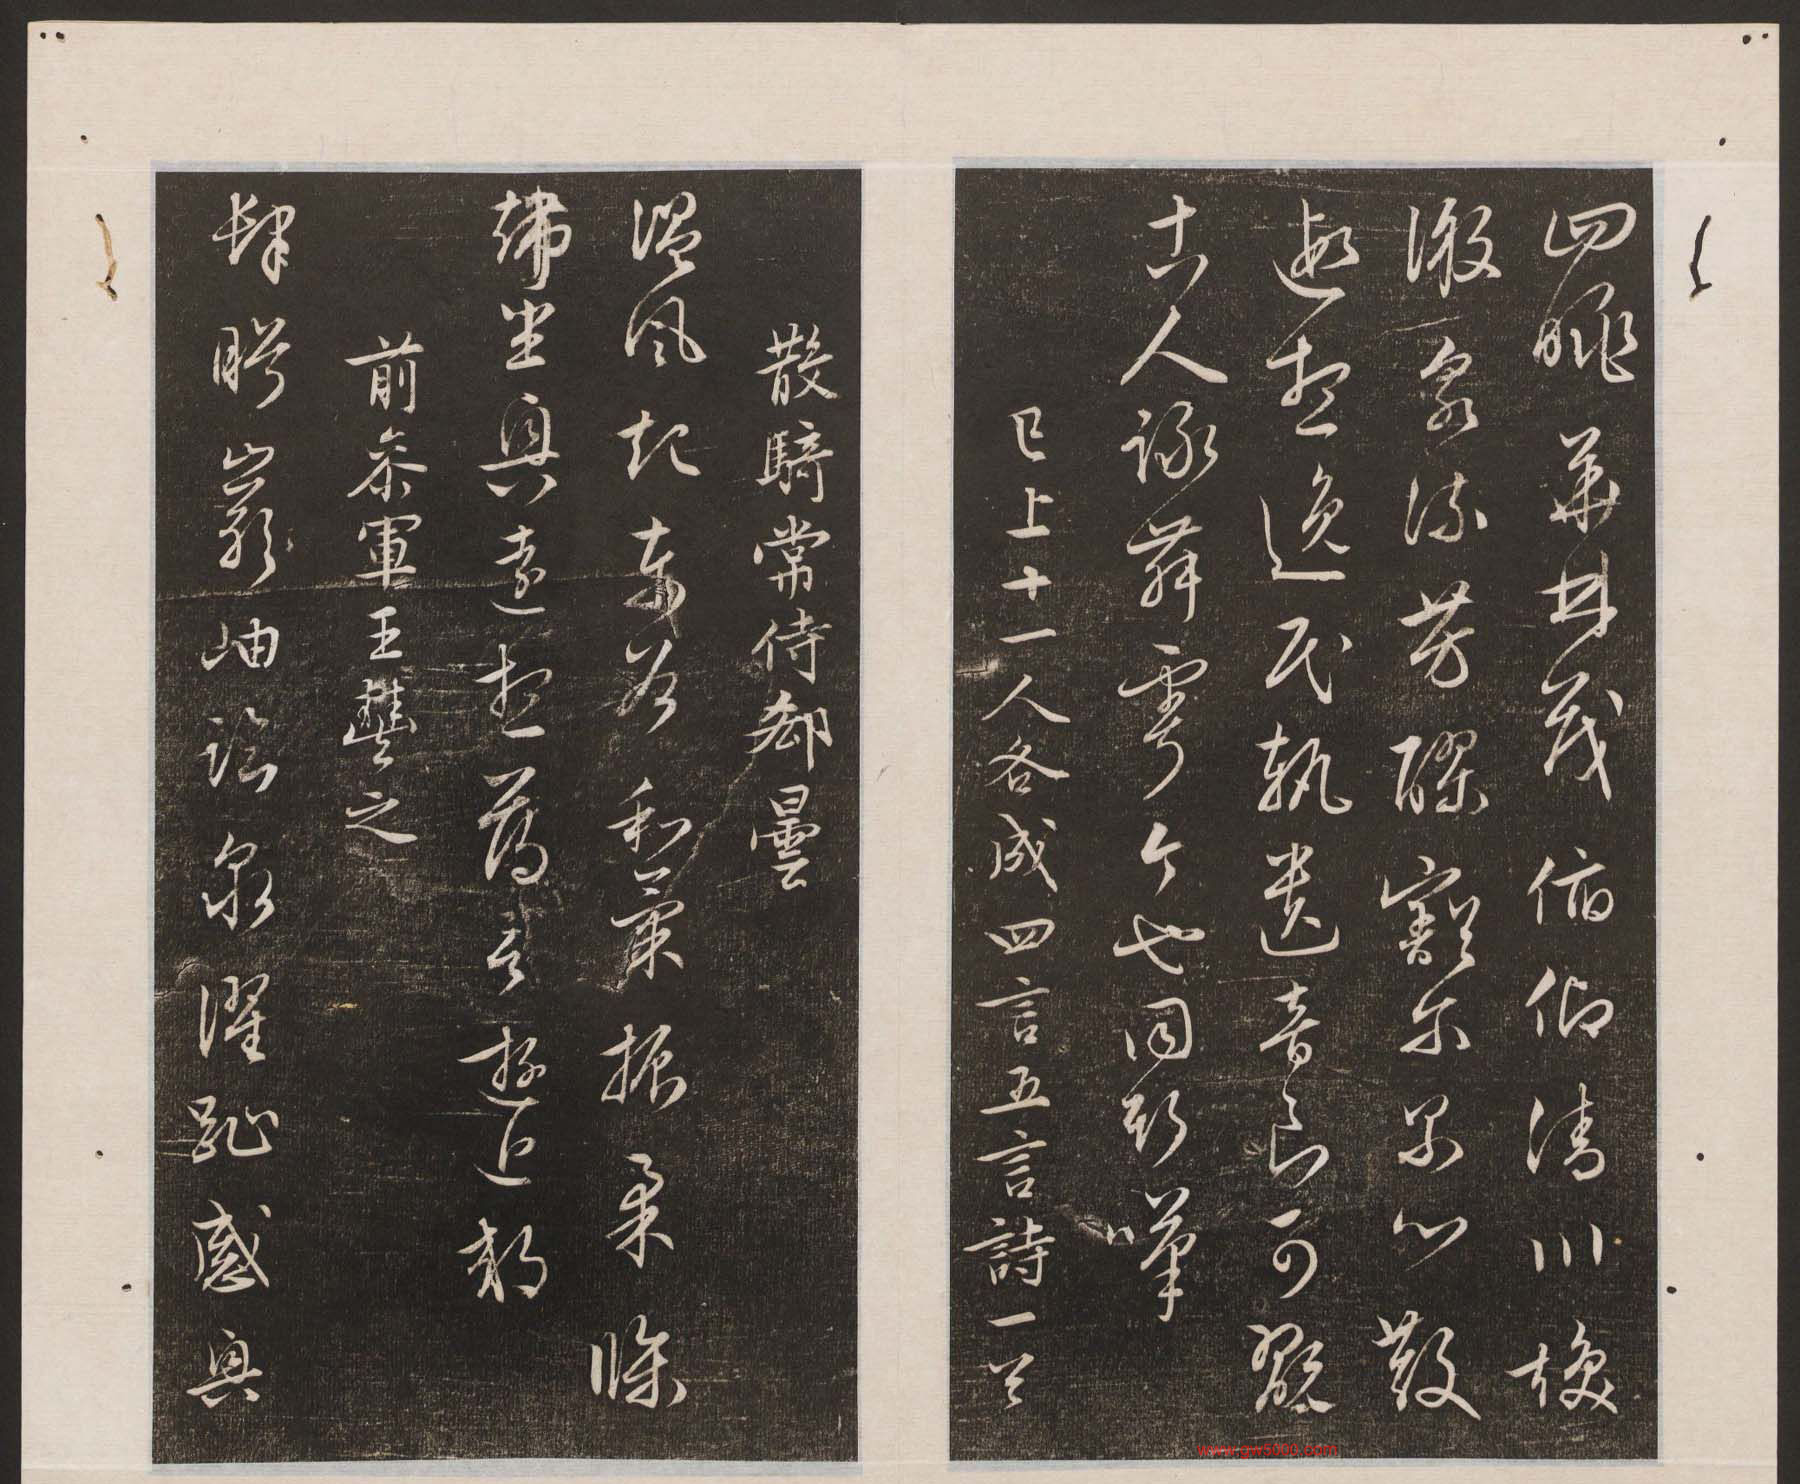 四眺華林茂俯仰清川渙
激泉流芳醪豁尔累心散
遐想逸民軌遺音良可翫
古人詠舞雩今也同斯嘆
已上十一人各成四言五言詩一首
散騎常侍郗曇
溫風起東谷和氣振柔條
端坐興遠想薄言遊近郊
前參軍王豐之
肆眄巖岫臨泉濯趾感興
www.gw5000.com